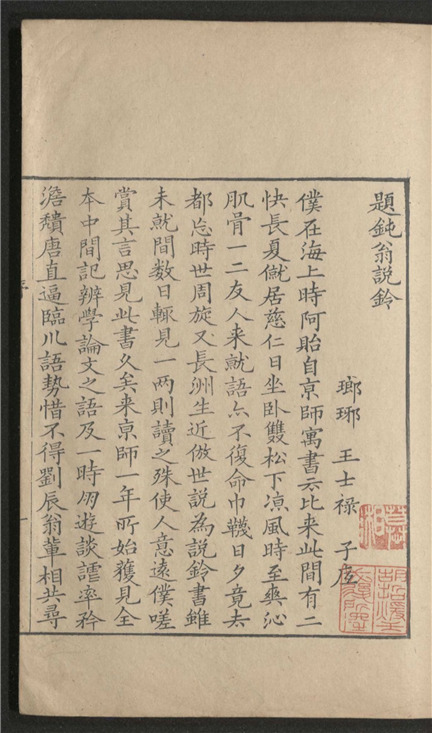 題鈍翁説鈴
瑯琊 王士禄 子底
僕在海上時阿貽自京師寓書云比来此間有二
快長夏僦居慈仁日坐卧雙松下凉風時至爽沁
肌骨一二友人来就語亦不復命巾韈日夕竟去
都忘時世周旋又長洲生近倣世説為説鈴書雖
未就間数日輙見一兩則讀之殊使人意遠僕嗟
賞其言思見此書久矣来京師一年所始獲見全
本中間記辨學論文之語及一時朋遊談謔率矜
澹穨唐直逼臨川語勢惜不得劉辰翁軰相共尋